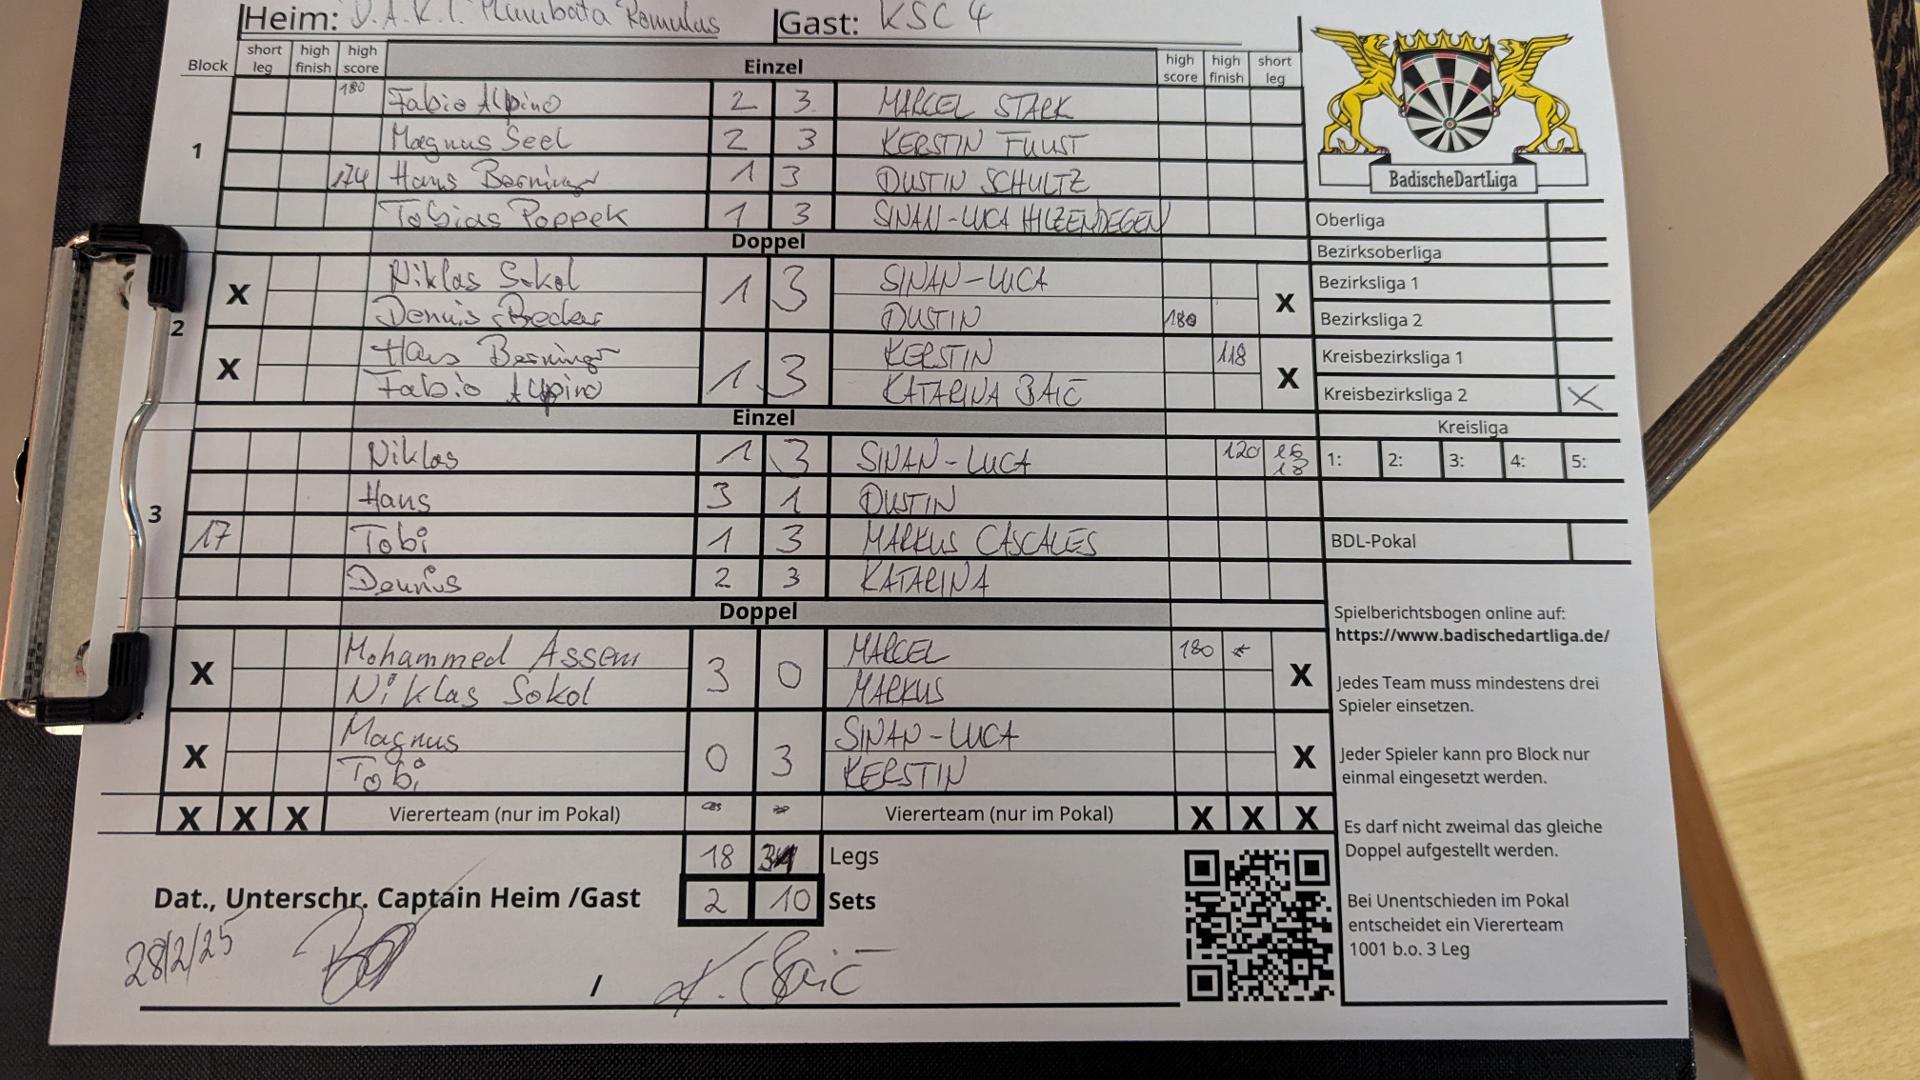 Heim: D.A.K.I. Minibata Romulus Gast: KSC 4
Block short leg high finish high score Einzel high score high finish short leg
180 Fabio Alpino 2 3 MARCEL STARK
1 Magnus Seel 2 3 KERSTIN FUUST
174 Hans Berninger 1 3 DUSTIN SCHULTZ
Tobias Poppek 1 3 SINAN-LUCA HILZENDEGEN
Doppel
2
X Niklas Sokol 1 3 SINAN-LUCA X
Dennis Becker DUSTIN 180
X Hans Berninger 1 3 KERSTIN 118 X
Fabio Alpino KATARINA BAIĆ
Einzel
3
Niklas 1 3 SINAN-LUCA 120 16 18
Hans 3 1 DUSTIN
17 Tobi 1 3 MARKUS CASCALES
Dennis 2 3 KATARINA
Doppel
X Mohammed Assem 3 0 MARCEL 180 X
Niklas Sokol MARKUS
X Magnus 0 3 SINAN-LUCA X
Tobi KERSTIN
X X X Viererteam (nur im Pokal) Viererteam (nur im Pokal) X X X
18 Legs
2 10 Sets
Dat., Unterschr. Captain Heim /Gast
28/2/25 / K. Baić
BadischeDartLiga
Oberliga
Bezirksoberliga
Bezirksliga 1
Bezirksliga 2
Kreisbezirksliga 1
Kreisbezirksliga 2 X
Kreisliga
1: 2: 3: 4: 5:
BDL-Pokal
Spielberichtsbogen online auf:
https://www.badischedartliga.de/
Jedes Team muss mindestens drei
Spieler einsetzen.
Jeder Spieler kann pro Block nur
einmal eingesetzt werden.
Es darf nicht zweimal das gleiche
Doppel aufgestellt werden.
Bei Unentschieden im Pokal
entscheidet ein Viererteam
1001 b.o. 3 Leg